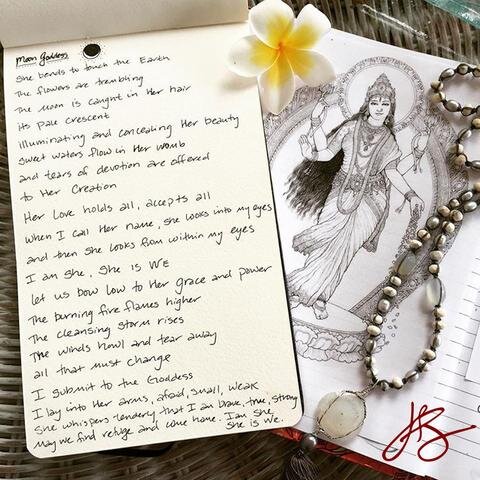 Moon Goddess
She bends to touch the Earth
The flowers are trembling
The moon is caught in Her hair
its pale crescent
Illuminating and concealing Her beauty
Sweet waters flow in Her womb
and tears of devotion are offered
to Her Creation
Her Love holds all, accepts all
When I call Her name, she looks into my eyes
and then she looks from within my eyes
I am she. She is WE
let us bow low to Her grace and power
The burning fire flames higher
The cleansing storm rises
The winds howl and tear away
all that must change
I submit to the Goddess
I lay into Her arms, afraid, small, weak
She whispers tenderly that I am brave, true, strong
may we find refuge and come home. I am she,
she is We.